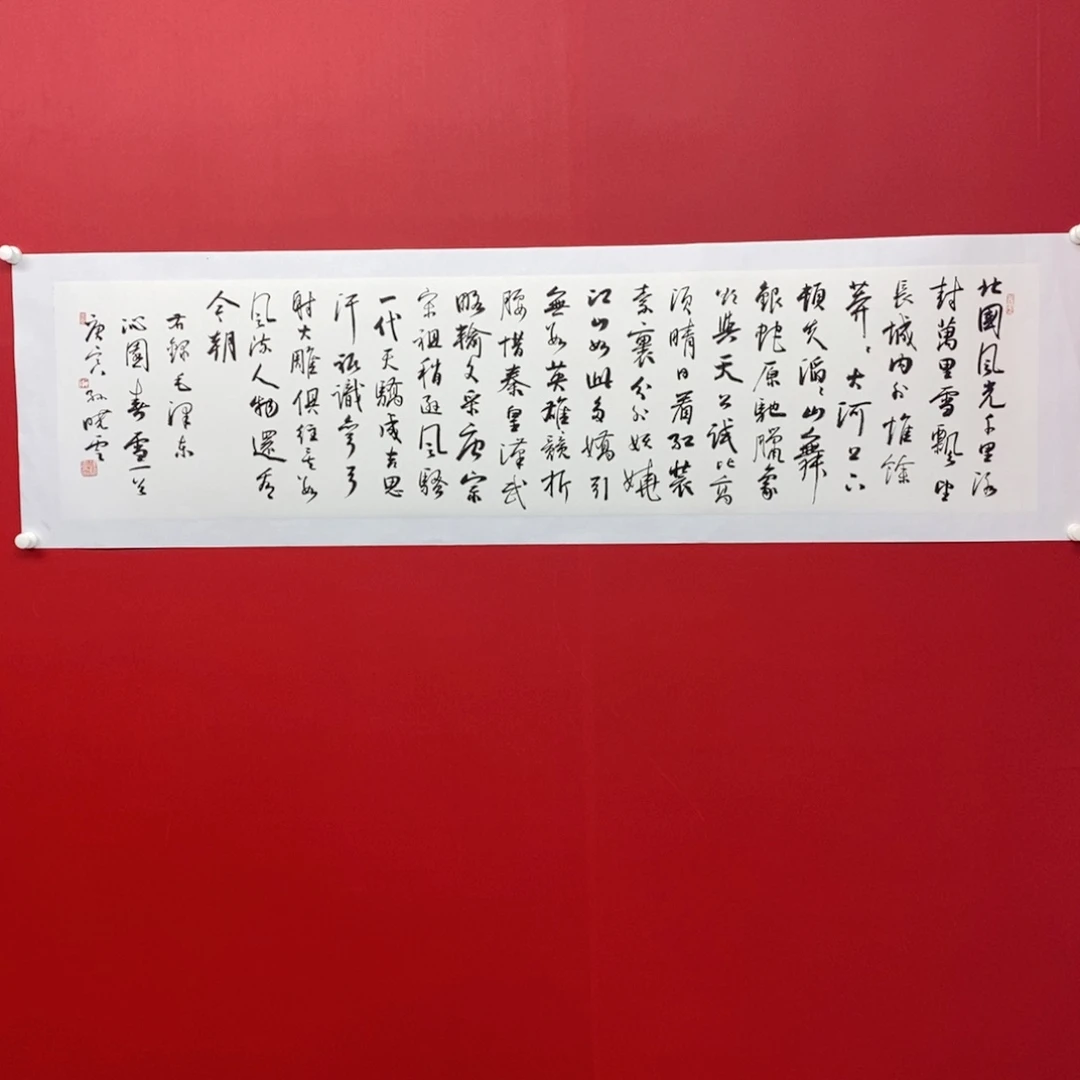 北國風光千里冰
封萬里雪飄望
長城內外惟餘
莽〻大河上下
頓失滔〻山舞
銀蛇原馳臘象
欲與天公試比高
須晴日看紅裝
素裹分外妖嬈
江山如此多嬌引
無數英雄競折
腰惜秦皇漢武
略輸文采唐宗
宋祖稍遜風騷
一代天驕成吉思
汗祇識彎弓
射大雕俱往矣數
風流人物還看
今朝
右錄毛澤東
沁園春雪一首
庚寅孫曉雲